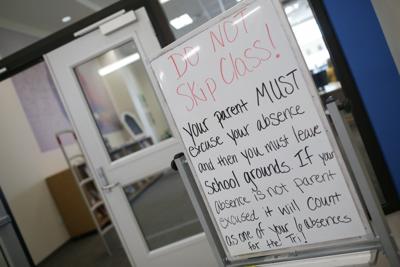 DO NOT
SKip Class!
Your parent MUST
excuse your absence
and then you must leave
school grounds. If your
absence is not parent
excused it will count
as one of your 6 absences
for the Tri!